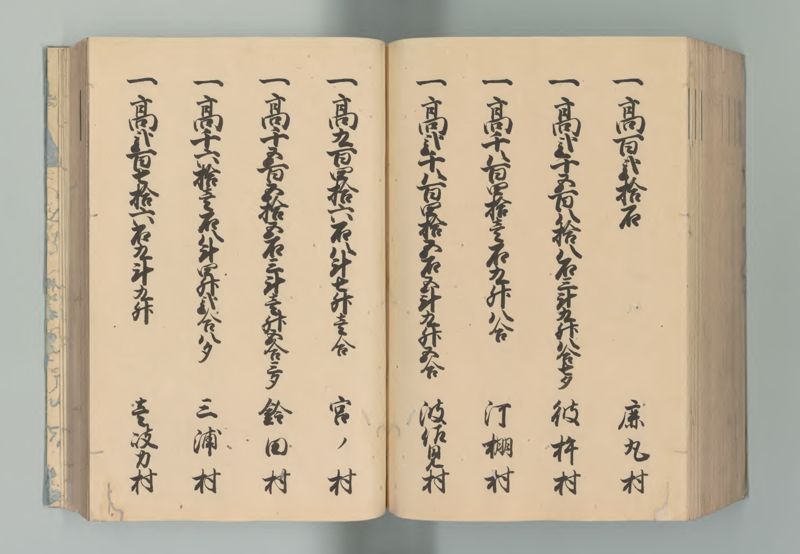 一 高百弐拾石 丸村
一 高弐千五百八拾八石三斗九升八合七夕 彼杵村
一 高千八百四拾壱石九升八合 河棚村
一 高弐千八百四拾五石五斗九升五合 波佐見村
一 高九百四拾六石八斗七升壱合 宮ノ村
一 高千五百五拾五石三斗壱升五合三夕 鈴田村
一 高千六拾壱石八斗四升弐合八夕 三浦村
一 高弐百七拾六石九斗九升 壱岐力村